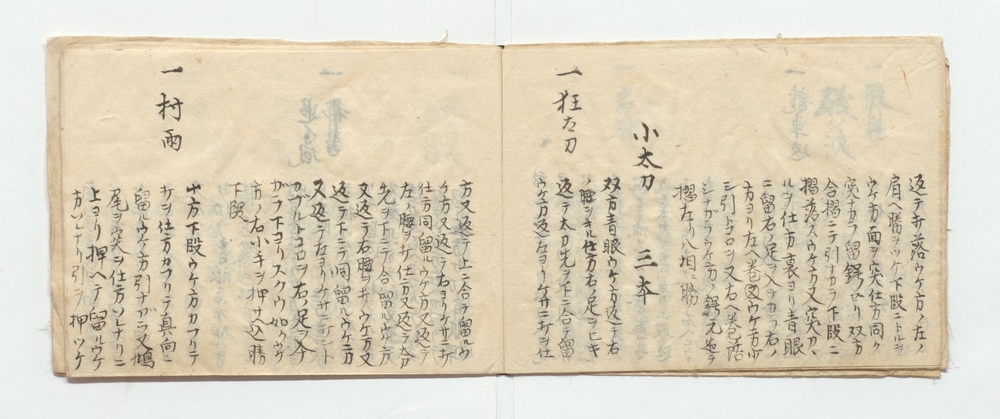 返テ弁落ウケ方ノ左ノ
肩ヘ勝ヲツケ下段ニトルヲ
ウケ方面ヲ突仕方同ク
突ナカラ留鍔セリ双方
合摺ニテ引ナカラ下段ニ
摺落スウケ方又突カヽ
ルヲ仕方裏ヨリ青眼
ニ留右ノ足ヲ入テカラ右ノ
方ヨリ左ヘ巻ウケ方少
シ引トコロヲ又右ヘ巻詰
シナカラウケ方ノ鍔元迠
摺左リ八相ニ勝
小太刀 三本
一狂太刀
双方青眼ウケ方返テ右
ノ腕ヲキル仕方右ノ足ヲヒキ
返テ太刀先ヲ下ニ合テ留
ウケ方返左ヨリケサニ打ヲ仕
方又返テ上ニ合テ留ル
ケ方又返テ右ヨリケサニ打
仕方同留ルウケ方又返テ
左ノ腕ヲ打仕方又返テ太刀
先ヲ下ニテ合留ルウケ方
又返テ右腕ヲ打ウケ方又
返テ下ニテ同留ルウケ方
又返テ左ヨリケサニ打ント
カフルトコロヲ右ノ足ヲ入ナ
カラ下ヨリスクウ如クウケ
方ノ右小手ヲ押サ込勝
下段
一村雨
双方下段ウケ方カフリテ
打ヲ仕方カフリテ真向ニ
留ルウケ方引ナカラ又鳩
尾ヲ突ヲ仕方ソレナリニ
上ヨリ押ヘテ留ルウケ
方ソレナリ引ヲ押ツケ